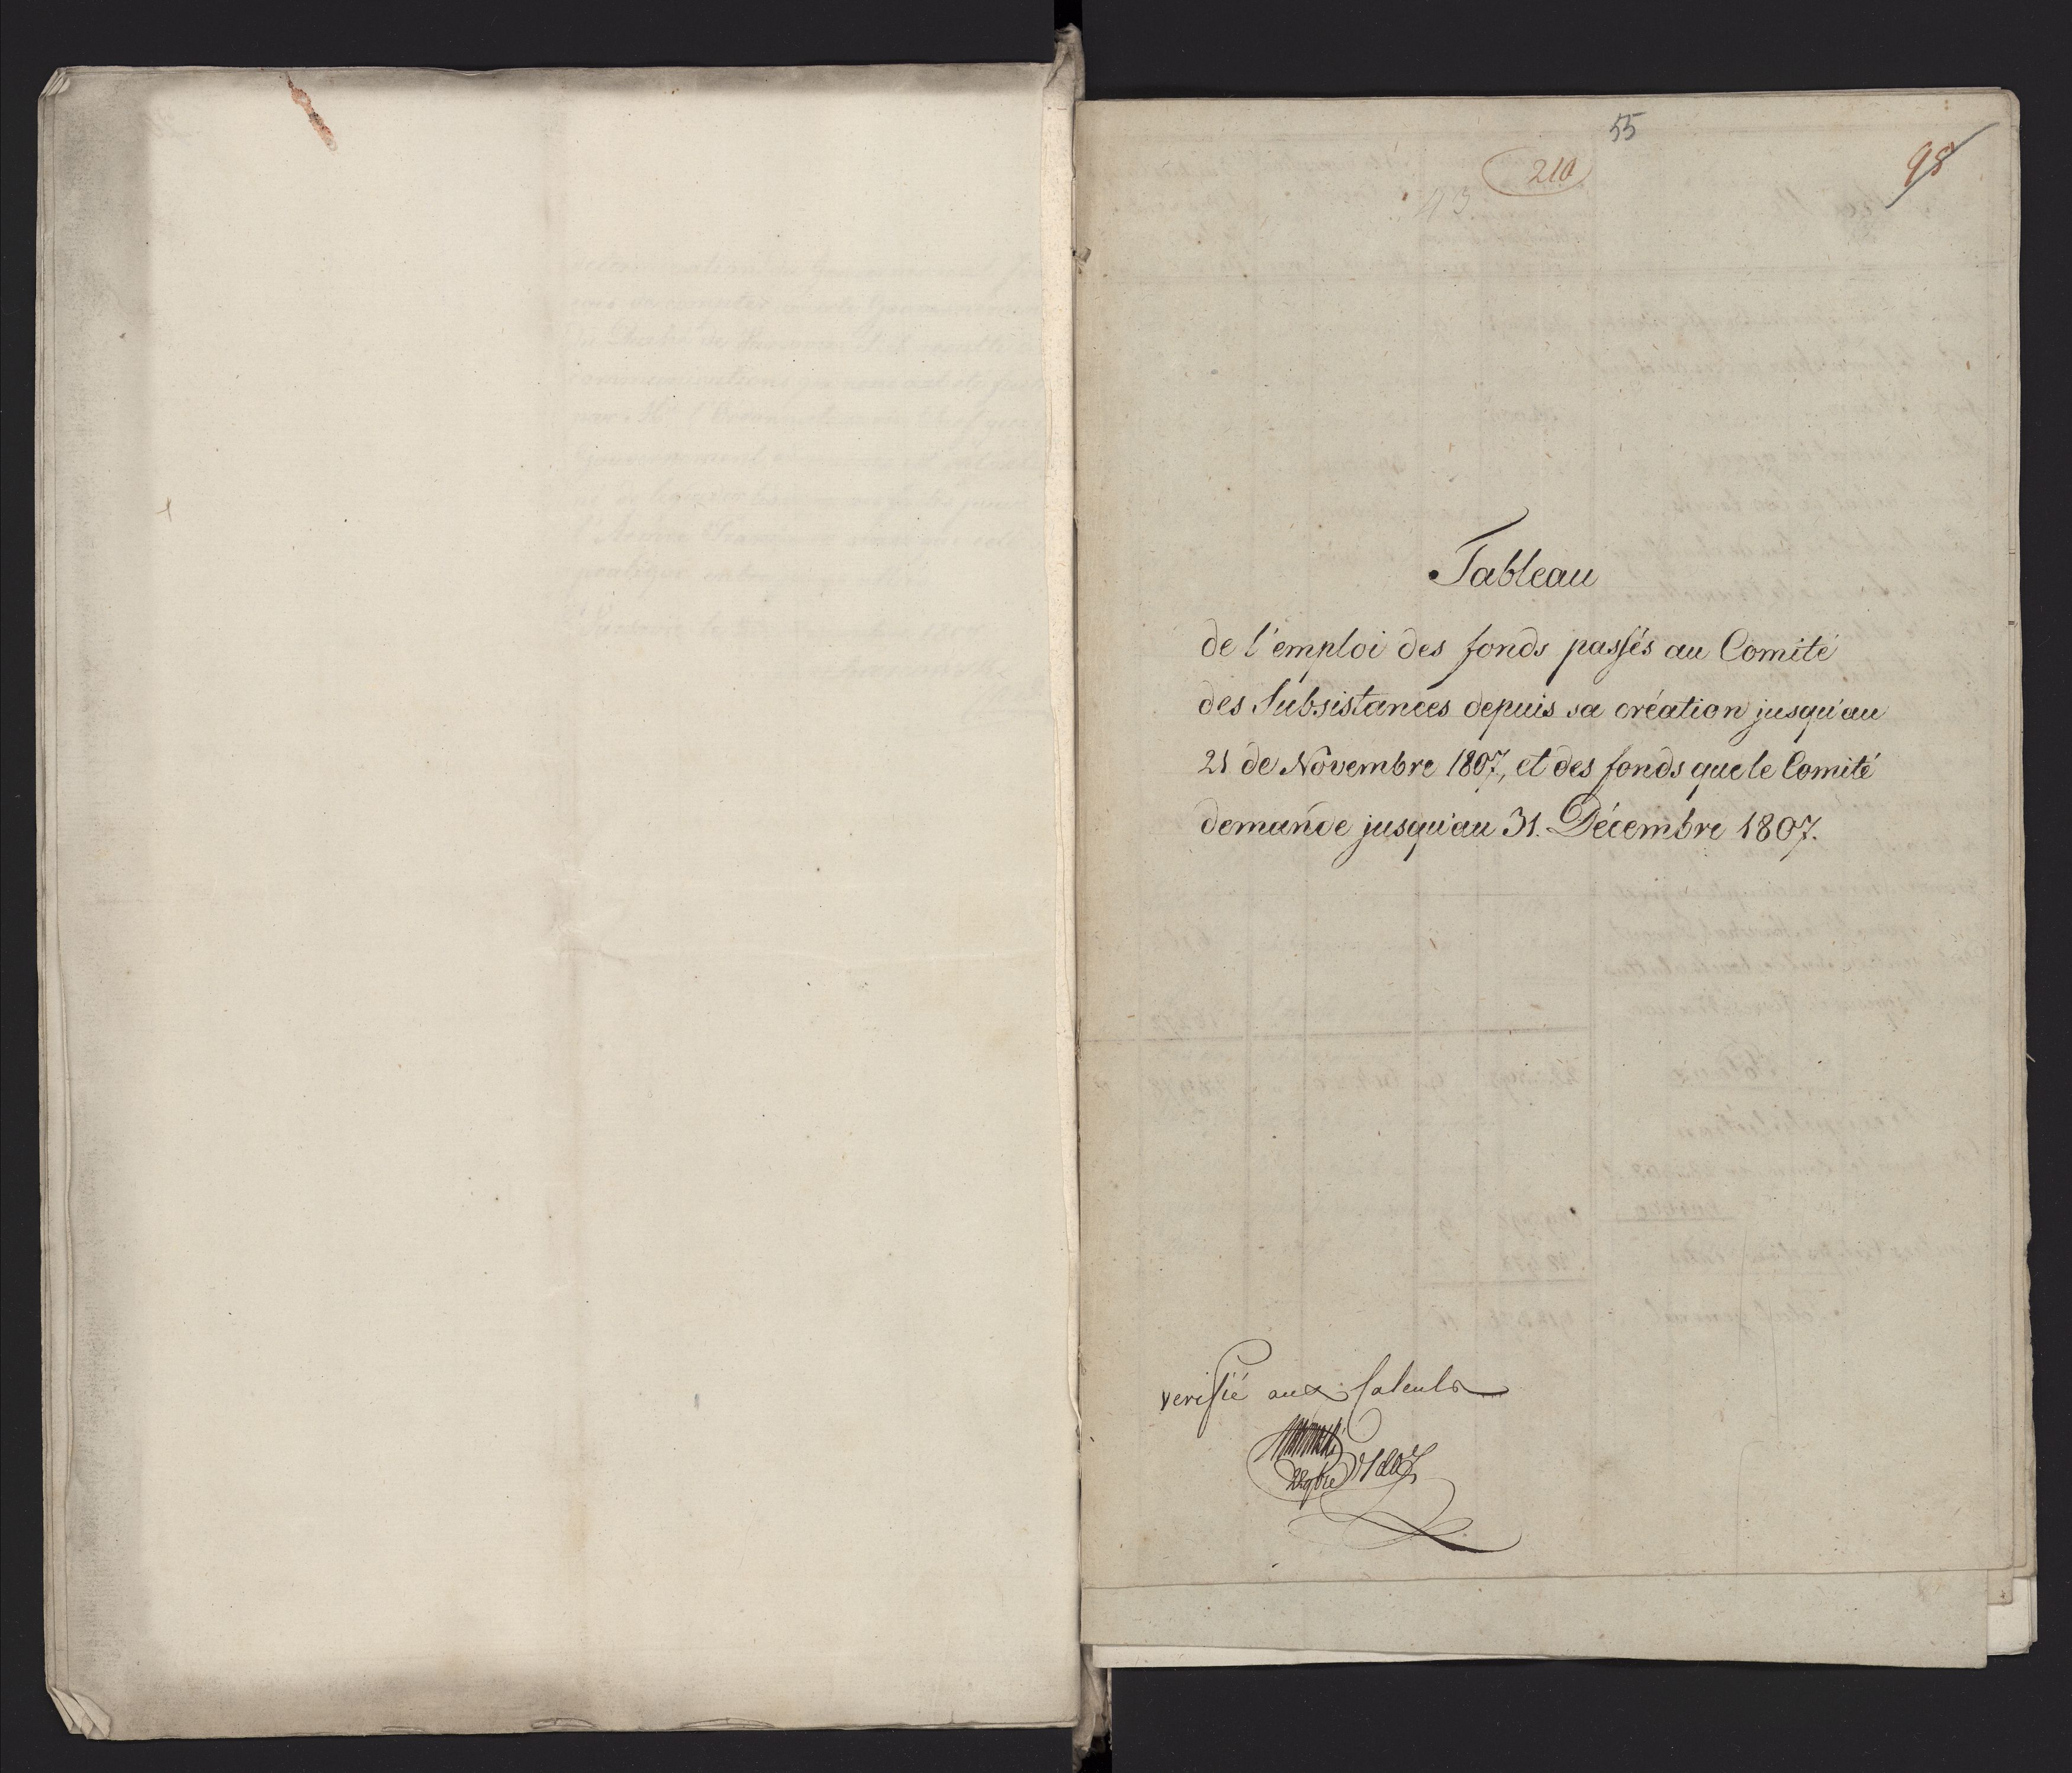 55
210
98
Tableau
de l'emploi des fonds passés au Comité
des Subsistances depuis sa création jusqu'au
21 de Novembre 1807, et des fonds que le Comité
demande jusqu'au 31. Décembre 1807.
verifié aux Calculs
1807